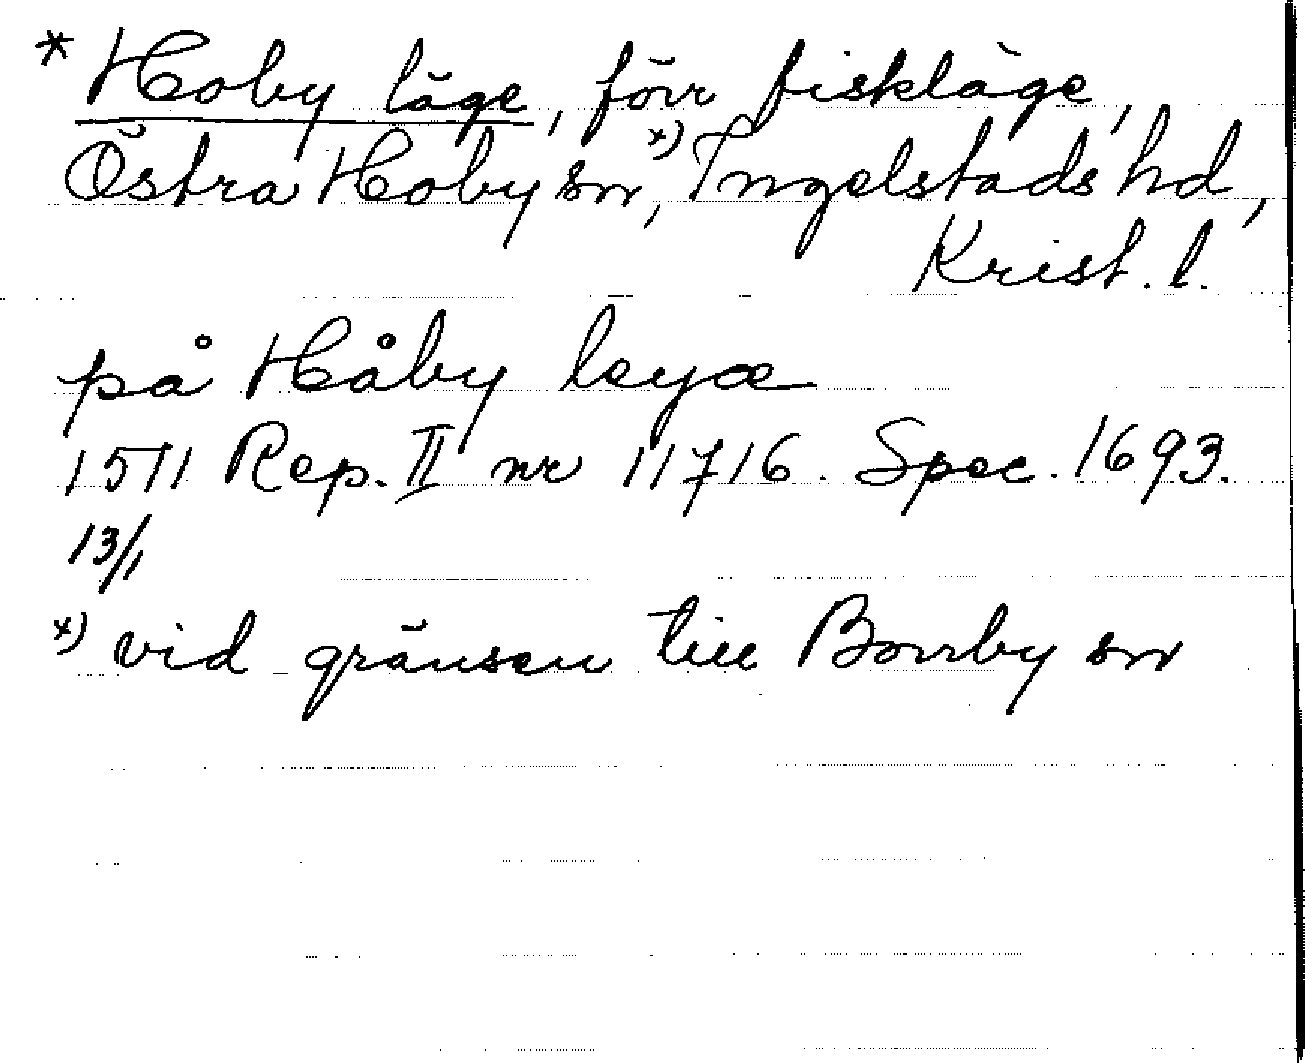 * Hoby läge, förr fiskläge,
Östra Hoby sn,*) Ingelstads hd,
Krist. l.
på Håby leyæ
1511 Rep. II nr 11716. Spec. 1693.
13/1
*) vid gränsen till Borrby sn